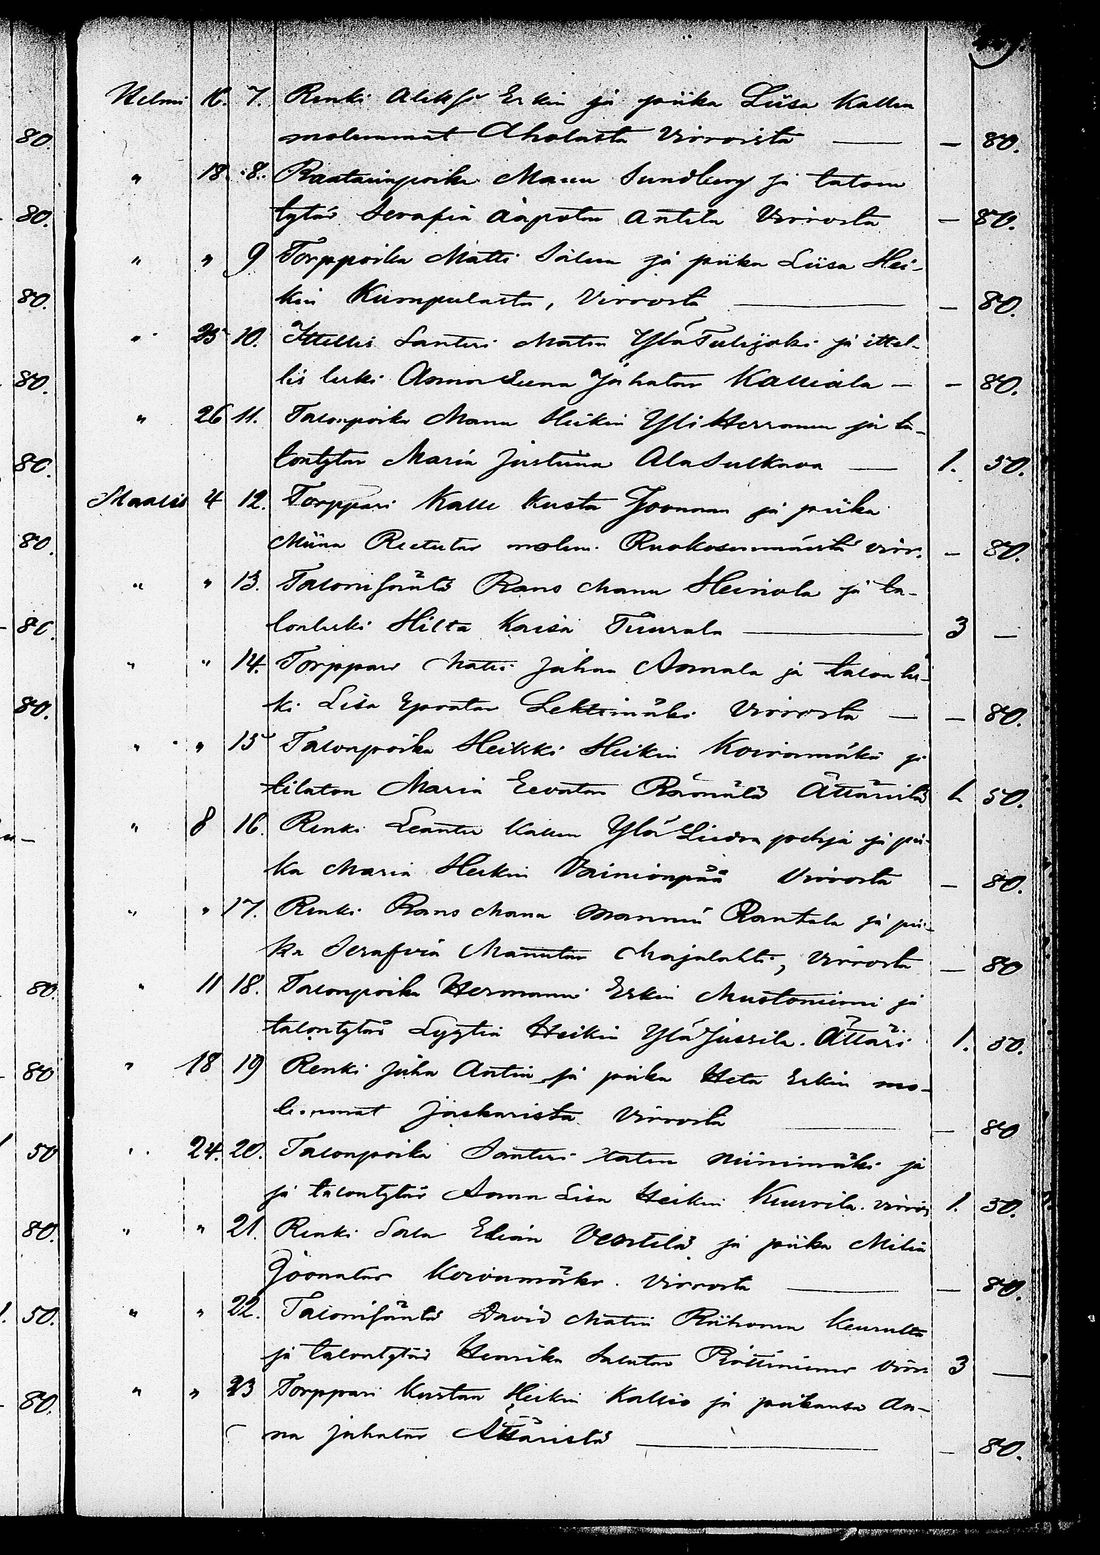 80.
80.
80.
80.
80.
80.
80.
80.
80.
80
1 50
80.
1. 50.
80.
Helmi 16. 7. Renki Aleksi Erkin ja piika Liisa Kallen
molemmat Aholasta Virroista — — 80.
" 18. 8. Räätälinpoika Manu Sundberg ja talon
tytär Serafia Aapotar Antila Virrosta — 80.
" " 9 Torppoika Matti Salun ja piika Liisa Hei-
kin Kumpulasta, Virrosta — — 80.
" 25 10. Ittellis Santeri Matin YläTulijoki ja ittel-
lis leski Anna Leena Juhatar Kalliala — — 80.
" 26 11. Talonpoika Manu Heikin YliHerranen ja ta-
lontytär Maria Justiina AlaSulkava — 1. 50.
Maalis 4 12. Torppari Kalle Kusta Joonnan ja piika
Miina Reetutar molem. Ruokosenmäestä virr. — 80.
" " 13. Talonisäntä Frans Manu Heinola ja ta-
lonleski Hilta Kaisa Tuurala — 3 —
" " 14. Torppari Matti Juhan Annala ja talon les-
ki Liisa Lehtimäki Virrosta — — 80.
" " 15 Talonpoika Heikki Heikin Koivumäki ja
tilaton Maria Eevatar Ättäristä 1. 50.
" 8 16. Renki Leanter Kallen Ylä ja pii-
ka Maria Heikin Vainionpää Virrosta — 80.
" " 17. Renki Frans Manu Mannin Rantala ja pii-
ka Serafiia Manutar Majalahti, Virrosta — 80
" 11 18. Talonpoika Hermanni Erkin Mustoniemi ja
talontytär Lyytia Heikin YläJussila. Ättäri 1. 50.
" 18 19 Renki Juha Antin ja piika Heta Erkin mo-
lemmat Jäskaristä Virrosta — — 80
" 24. 20. Talonpoika Santeri Matin Niinimäki ja
ja talontytär Anna Liisa Heikin Kuurila. virros 1. 50.
" " 21. Renki Salu Elian Vertelä ja piika Milia
Joonatar Koivumäki. Virrosta — — 80.
" " 22. Talonisäntä David Matin Riihonen Keurulta
ja talontytär Henrika Salutar virr 3 —
" " 23 Torppari Kustaa Heikin Kallio ja piikansa An-
na Juhatar Ättäristä — — 80.